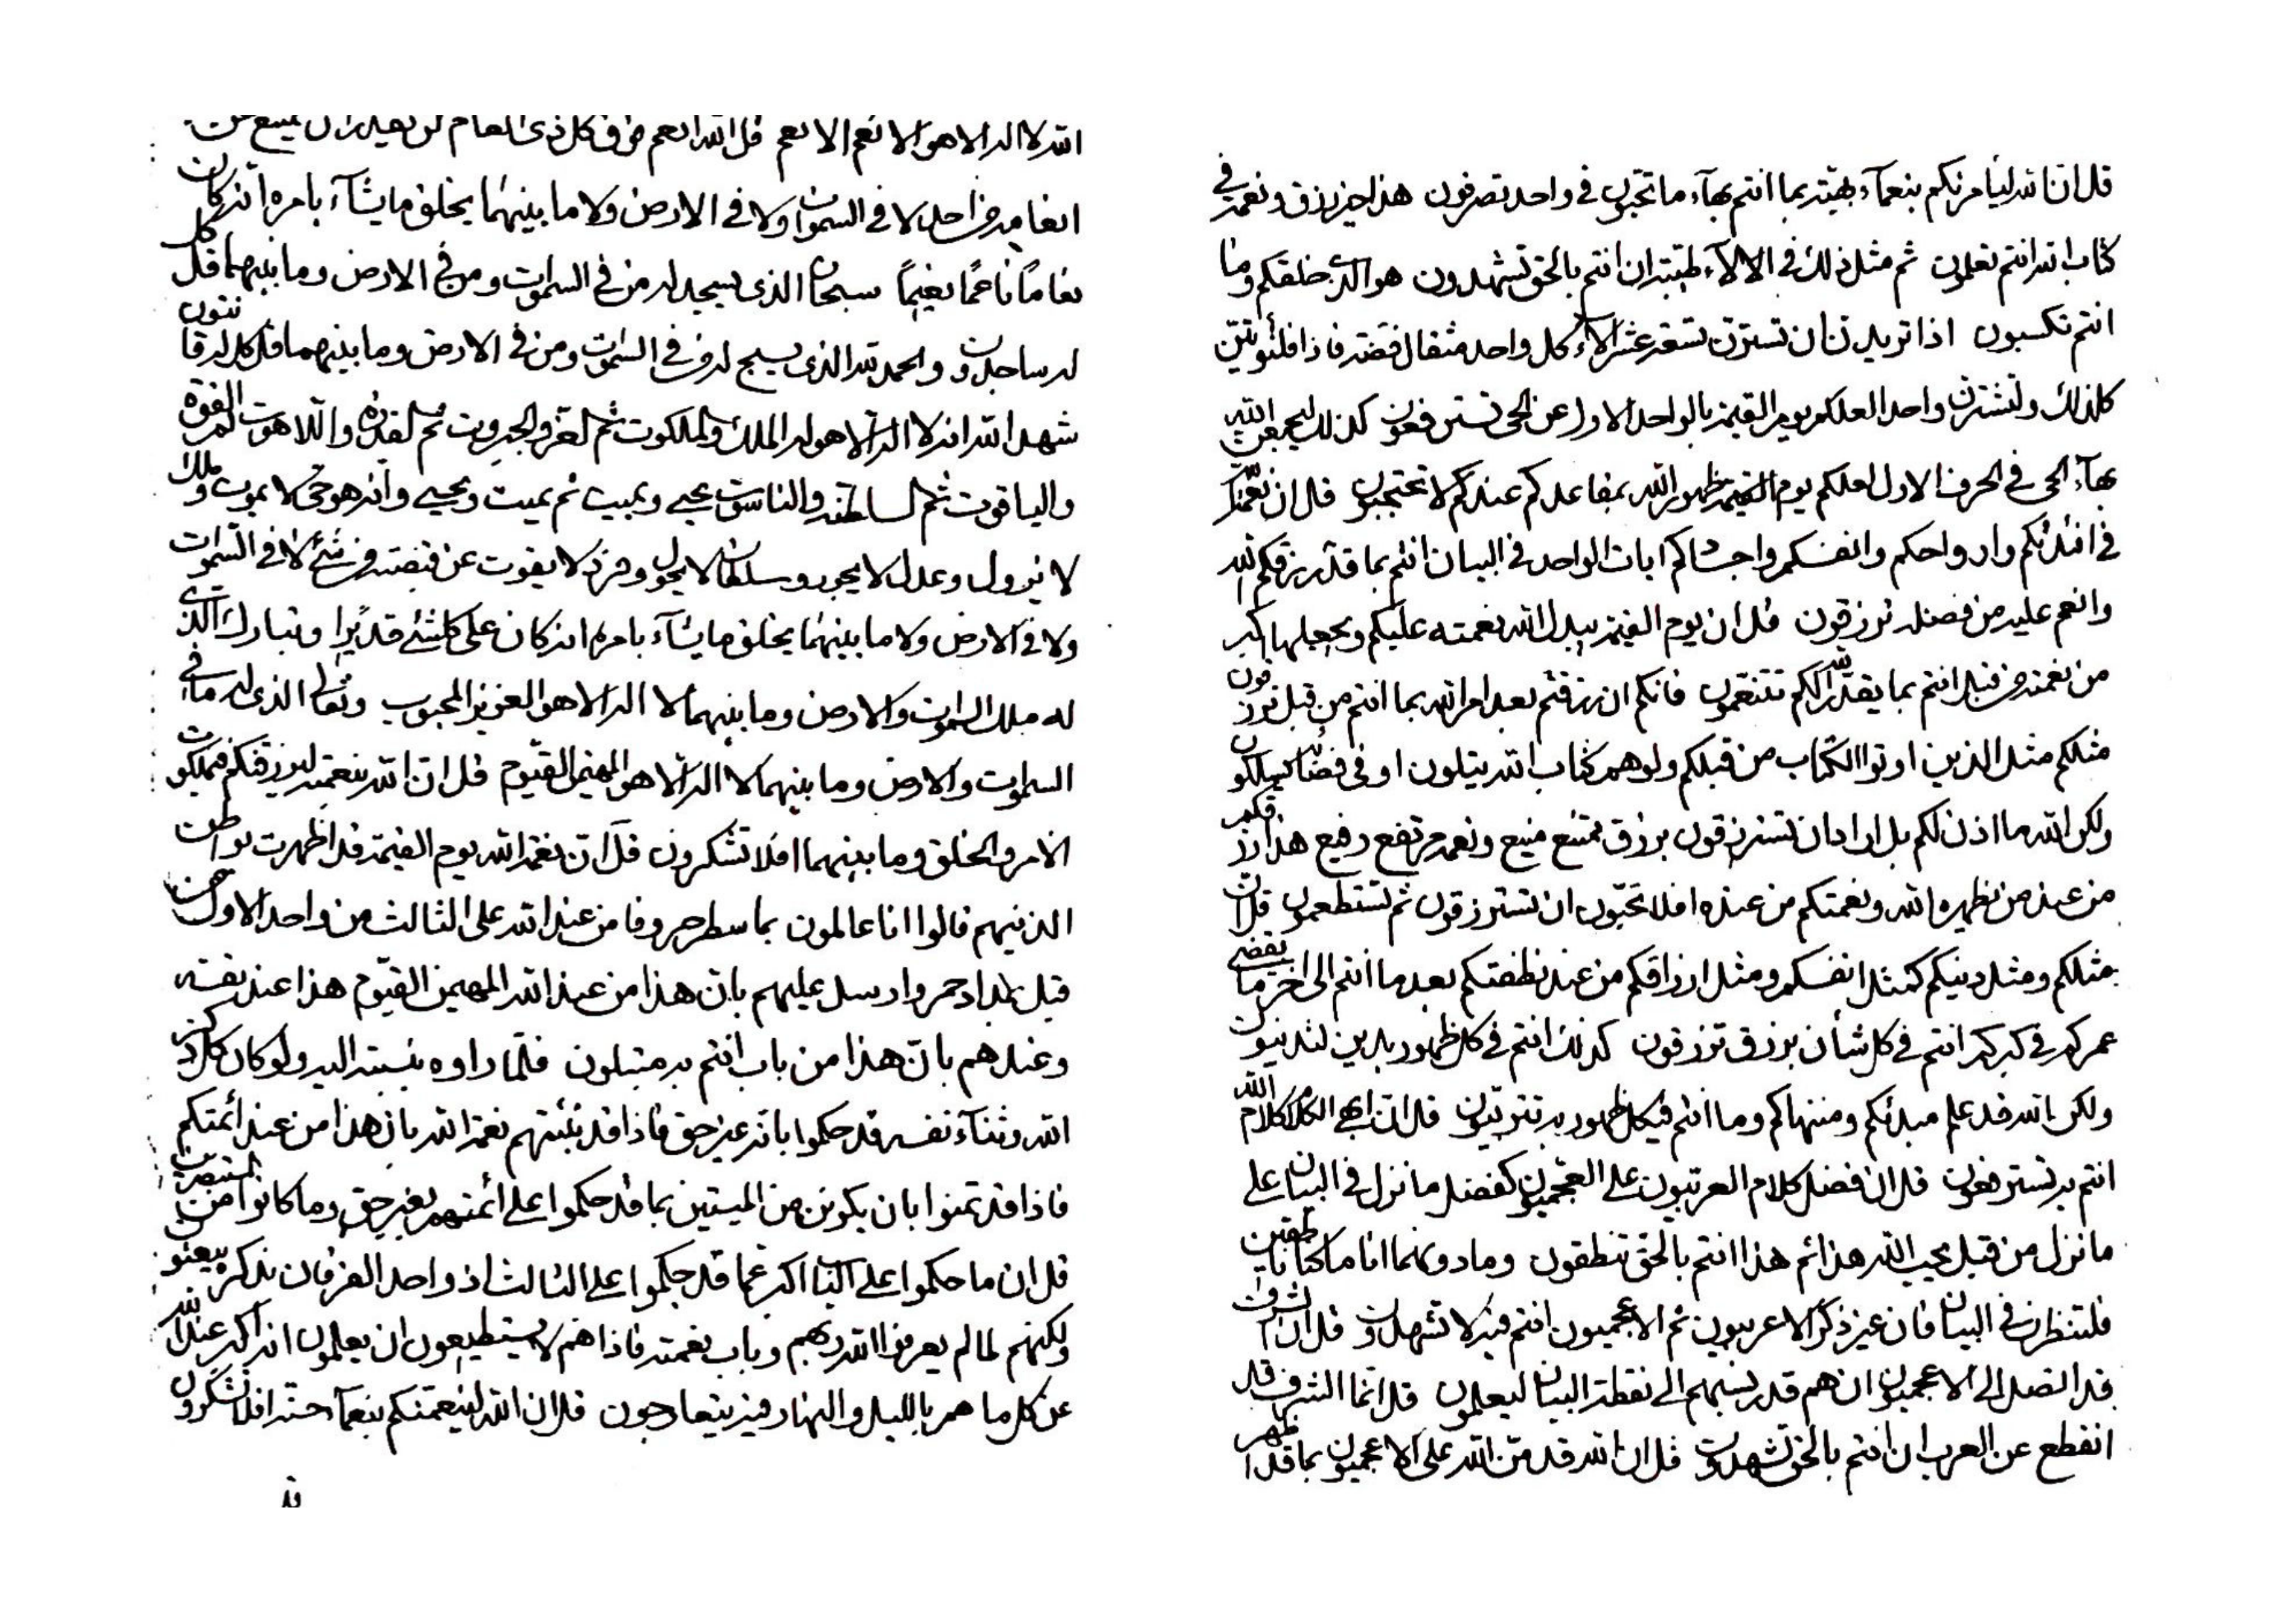 قل ان الله ليامرنكم بنعمآء بهية بما انتم بهآء ما تحبون في واحد تصرفون هذا خير رزق ونعمة في
كتاب الله انتم تعلمون ثم مثل ذلك في الالآء طيبة ان انتم بالحق تشهدون هو الذي خلقكم وما
انتم تكسبون اذا تريدن ان تسعة عشر الآء كل واحد مثقال فضة فاذا
كذلك ولتشترن واحدا لعلكم يوم القيمة بالواحد الاول عن الحي تسترفعون كذلك ليجمعن الله
بهآء الحي في الحرف الاول لعلكم يوم القيمة بظهور الله بمقاعدكم عندكم لا تحتجبون قل ان نعمة
في افئدتكم وارواحكم وانفسكم واجسادكم ايات الواحد في البيان انتم بما قد رزقكم الله
وانعم عليه من فضله ترزقون قل ان يوم القيمة يبدل الله نعمته عليكم ويجعلها اكبر
من نعمة من قبل انتم بما يقدر الله لكم تتنعمون فانكم ان رزقتم بعد امر الله بما انتم من قبل ترزقون
مثلكم مثل الذين اوتوا الكتاب من قبلكم ولو هم كتاب الله يتلون او في فضة يملكون
ولكن الله ما اذن لكم بل اراد ان تسترزقون برزق ممتنع منيع ونعم مرتفع رفيع هذا رزقكم
من عند من يظهره الله ونعمتكم من عنده افلا تحبون ان تسترزقون ثم تستطعمون قل ان
مثلكم ومثل دينكم كمثل انفسكم ومثل ارزاقكم من عند نطفتكم بعد ما انتم الى اخر ما يقضى
عمركم في كبركم انتم في كل شأن برزق ترزقون كذلك انتم في كل ظهور بدين لتدينون
ولكن الله قد علم مبدئكم ومنتهاكم وما انتم في كل ظهور به تتربيون قل ان ابهى الكلام كلام الله
انتم به تسترفعون قل ان فضل كلام العربيون على العجميون كفضل ما نزل في البيان على
ما نزل من قبل يحب الله هذا ثم هذا انتم بالحق تنطقون وما دونهما انا ما كنا ناطقين
فلتنظرن في البيان فان غير ذكر الاعربيون ثم الاعجميون انتم فيه لا تشهدون قل ان الشرف
قد اتصل الى الاعجميون ان هم قد ربهم الى نقطة البيان ليعلمون قل انما الشرف قد
انقطع عن العرب ان انتم بالحق تشهدون قل ان الله قد من الله على الاعجميون بما قد اظهر
الله لا اله الا هو الانعم الانعم قل الله انعم فوق كل ذي انعام لن يقدر ان يمتنع عن
انعامه من احد لا في السموات ولا في الارض ولا ما بينهما يخلق ما يشآء بامره انه كان
نعاما ناعما نعيما سبحان الذي يسجد له من في السموات ومن في الارض وما بينهما قل كل
له ساجدون والحمد لله الذي يسبح له من في السموات ومن في الارض وما بينهما قل كل له قانتون
شهد الله انه لا اله الا هو له الملك والملكوت ثم العز والجبروت ثم القدرة واللاهوت ثم القوة
والياقوت ثم السلطنة والناسوت يحيي ويميت ثم يميت ويحيي وانه هو حي لا يموت وملك
لا يزول وعدل لا يجور وسلطان لا يحول وفرد لا يفوت عن قبضته من شئ لا في السموات
ولا في الارض ولا ما بينهما يخلق ما يشآء بامره انه كان على كل شئ قديرا وتبارك الذي
له ملك السموات والارض وما بينهما لا اله الا هو العزيز المحبوب وتعالى الذي له ما في
السموات والارض وما بينهما لا اله الا هو المهيمن القيوم قل ان الله بنعمته ليرزقنكم ملكوت
الامر والخلق وما بينهما افلا تشكرون قل ان نعمة الله يوم القيمة قد اظهرت بواطن
الذينهم قالوا انا عالمون بما سطر حروفا من عند الله على الثالث من واحد الاول من
قبل بمداد حمر وارسل عليهم بان هذا من عند الله المهيمن القيوم هذا عند نفسه
وعندهم بان هذا من باب انتم به متبلون فلما راوه بنسبته اليه ولو كان كل ذكر
الله وثناء نفسه قد حكموا بانه غير حق فاذا قد نبئتهم نعمة الله بان هذا من عند ائمتكم
فاذا قد تمنوا بان يكونن من الميتين بما قد حكموا على ائمتهم بغير حق وما كانوا من المستبصرين
قل ان ما حكموا على اكبر عما قد حكموا على الثالث اذ واحد الفرقان بذكره يبعثون
ولكنهم لما لم يعرفوا الله ربهم وباب نعمته فاذا هم لا يستطيعون ان يعلمون انه اكبر عند الله
عن كل ما هم بالليل والنهار فيه يتعارجون قل ان الله لينعمنكم بنعمآء حسنة افلا تشكرون